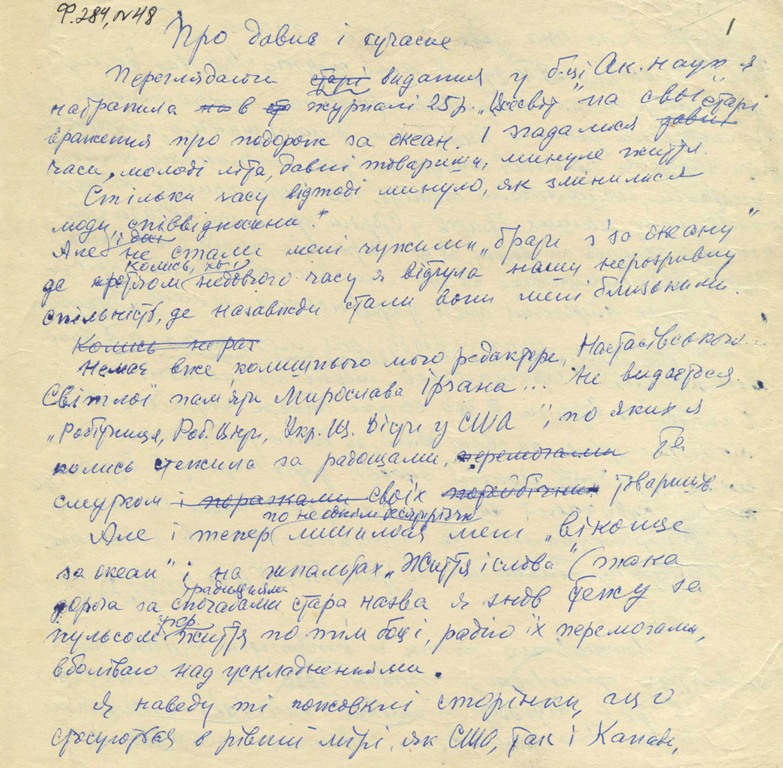 Ф. 284, №48
1
Про давнє і сучасне
Переглядаючи старі видання у б-ці Ак. наук я
натрапила на в журналі 25 р. „Всесвіт" на свої старі
враження про подорож за океан. І згадалися давні
часи, молоді літа, давні товариші, минуле життя.
Стільки часу відтоді минуло, як змінилися
люди, співвідношення.
Але не стали мені чужими „брати з-за океану"
колись, хоч і
де протягом недовгого часу я відчула нашу нерозривну
спільність, де назавжди стали вони мені близькими.
Колись не раз
Немає вже колишнього мого редактора, Настасівського...
Світлої пам'яти Мирослава Ірчана... Не видаються
„Робітниця, Роб. Укр. Щ. Вісти у США", по яких я
колись стежила за радощами, перемогами
смутком і поразками своїх товаришів.
Але і тепер лишилося мені „віконце
за океан" і на шпальтах „Життя і слова" (така
традиціями
дорога за спогадами стара назва я знов стежу за
пульсом життя по тім боці, радію їх перемогами,
вболіваю над ускладненнями.
Я наведу ті пожовклі сторінки, що
стосуються в рівній мірі, як США, так і Канади,